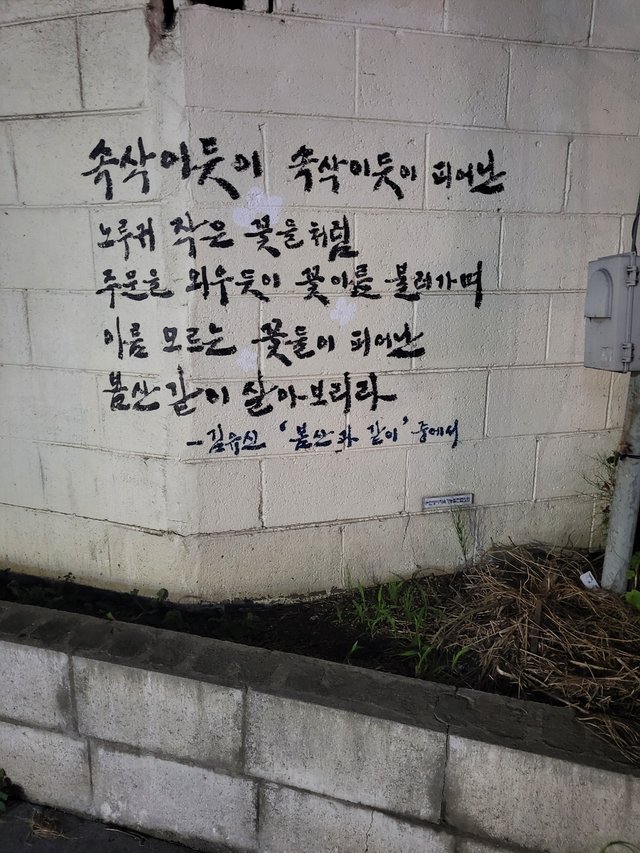 속삭이듯이 속삭이듯이 피어난
노루귀 작은 꽃들처럼
주문을 외우듯이 꽃이름 불러가며
이름 모르는 꽃들이 피어난
봄산같이 살아보리라
-김유신 '봄산과 같이' 중에서